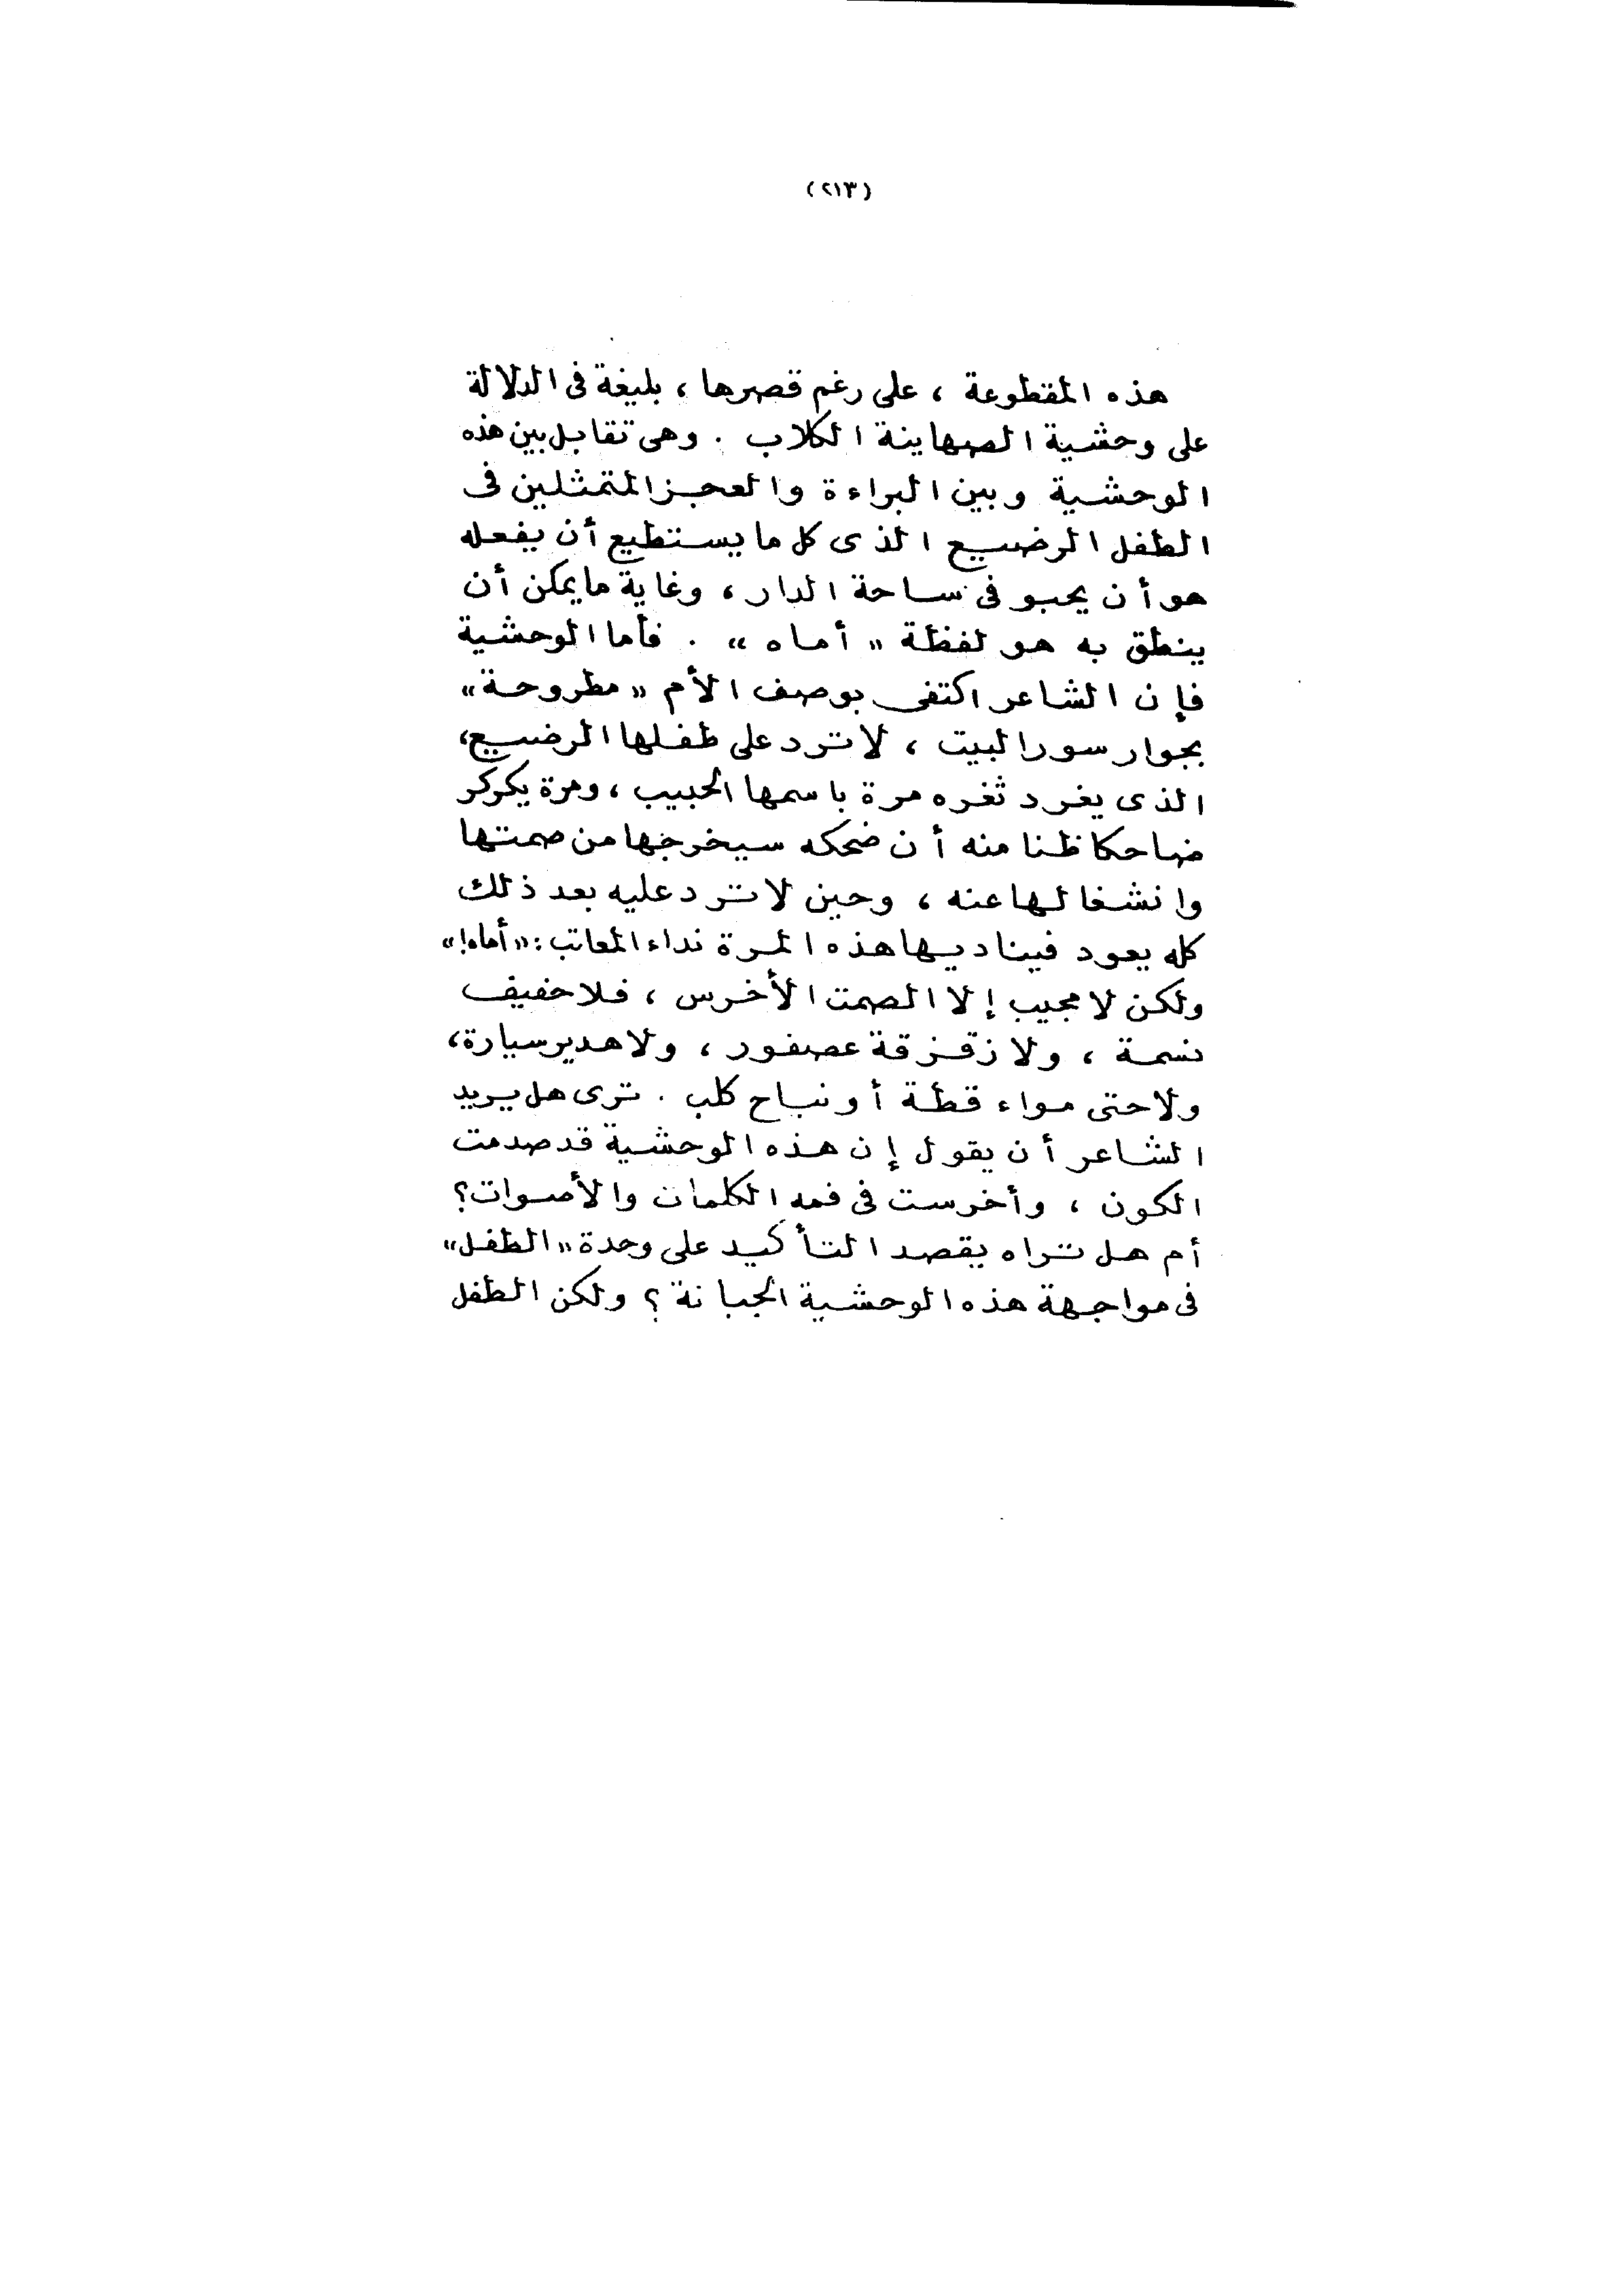 (٢١٣)
هذه المقطوعة ، على رغم قصرها ، بليغة فى الدلالة
على وحشية الصهاينة الكلاب . وهى تقابل بين هذه
الوحشية وبين البراءة والعجز المتمثلين فى
الطفل الرضيع الذى كل ما يستطيع أن يفعله
هو أن يحبو فى ساحة الدار ، وغاية ما يمكن أن
ينطق به هو لفظة « أماه » . فأما الوحشية
فإن الشاعر اكتفى بوصف الأم « مطروحة »
بجوار سور البيت ، لا ترد على طفلها الرضيع ،
الذى يغرد ثغره مرة باسمها الحبيب ، ومرة يكركر
ضاحكا ظنا منه أن ضحكه سيخرجها من صمتها
وانشغالها عنه ، وحين لا ترد عليه بعد ذلك
كله يعود فيناديها هذه المرة نداء المعاتب : « أماه! »
ولكن لا مجيب إلا الصمت الأخرس ، فلا حفيف
نسمة ، ولا زقزقة عصفور ، ولا هدير سيارة ،
ولا حتى مواء قطة أو نباح كلب . ترى هل يريد
الشاعر أن يقول إن هذه الوحشية قد صدمت
الكون ، وأخرست فى فمه الكلمات والأصوات؟
أم هل تراه يقصد التأكيد على وحدة « الطفل »
فى مواجهة هذه الوحشية الجبانة ؟ ولكن الطفل